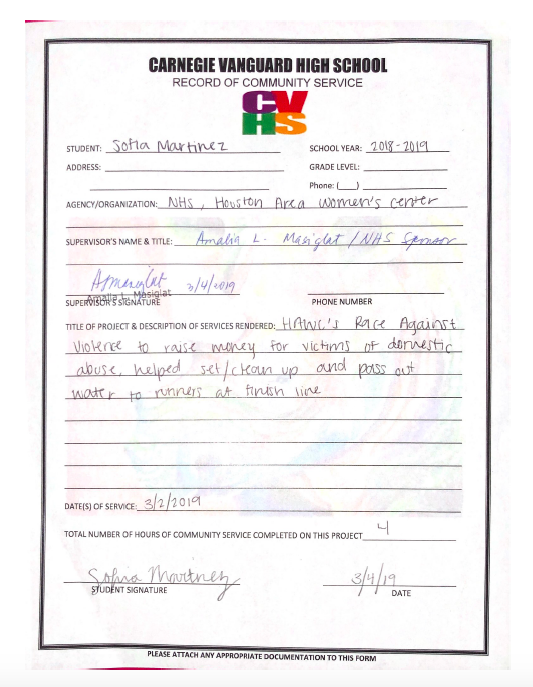 CARNEGIE VANGUARD HIGH SCHOOL
RECORD OF COMMUNITY SERVICE
CV
HS
STUDENT: Sofia Martinez SCHOOL YEAR: 2018-2019
ADDRESS: GRADE LEVEL:
Phone: ( )
AGENCY/ORGANIZATION: NHS, Houston Area Women's center
SUPERVISOR'S NAME & TITLE: Amalia L. Masiglat / NHS Sponsor
AMasiglat 3/4/2019
Amalia L. Masiglat
SUPERVISOR'S SIGNATURE PHONE NUMBER
TITLE OF PROJECT & DESCRIPTION OF SERVICES RENDERED: HAWC's Race Against
Violence to raise money for victims of domestic
abuse, helped set/clean up and pass out
water to runners at finish line
DATE(S) OF SERVICE: 3/2/2019
TOTAL NUMBER OF HOURS OF COMMUNITY SERVICE COMPLETED ON THIS PROJECT 4
Sofia Martinez 3/4/19
STUDENT SIGNATURE DATE
PLEASE ATTACH ANY APPROPRIATE DOCUMENTATION TO THIS FORM